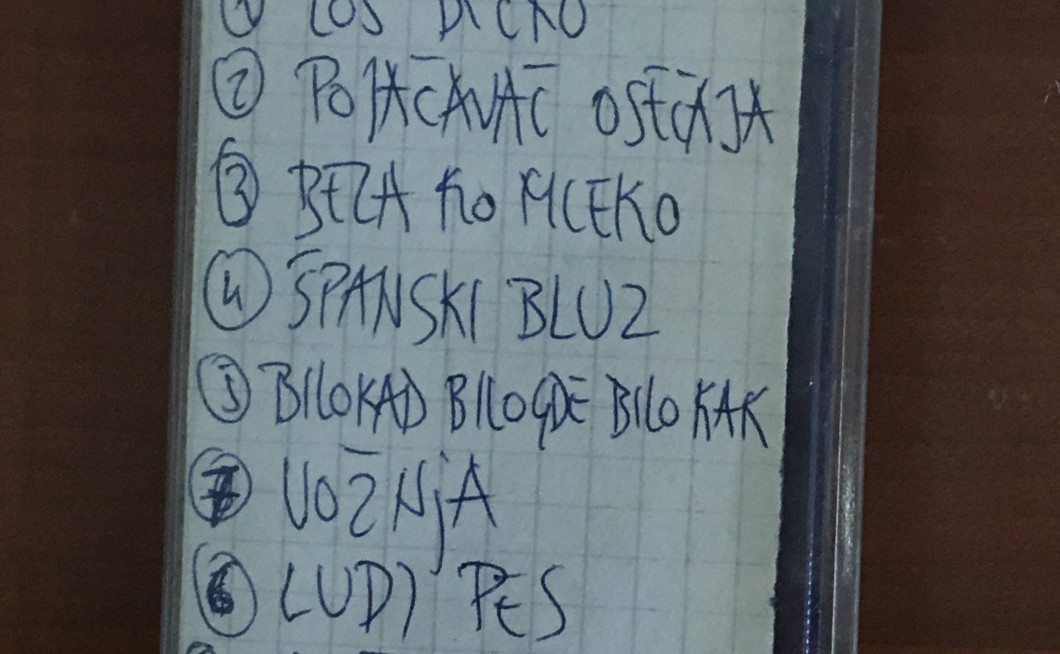 ① LOŠ DICKO
② POJAČAVAČ OSEĆAJA
③ BEZA KO MLEKO
④ ŠPANSKI BLUZ
⑤ BILOKAD BILOGDE BILO KAK
⑦ VOŽNjA
⑥ LUDI PES